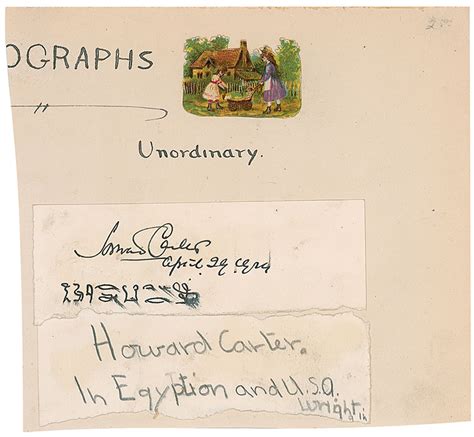 OGRAPHS
"
Unordinary.
Howard Carter
April 29 1924
Howard Carter.
In Egyption and U.S.A.
Wrightin